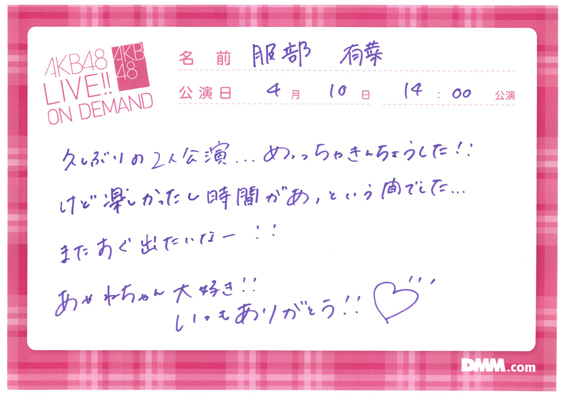 AKB48
LIVE!!
ON DEMAND
AKB
48
名前 服部 有菜
公演日 4月10日 14:00 公演
久しぶりの2人公演...めっちゃきんちょうした!!
けど楽しかったし時間があっという間でした...
またすぐ出たいなー!!
あやねちゃん大好き!!
いつもありがとう!!
DMM.com